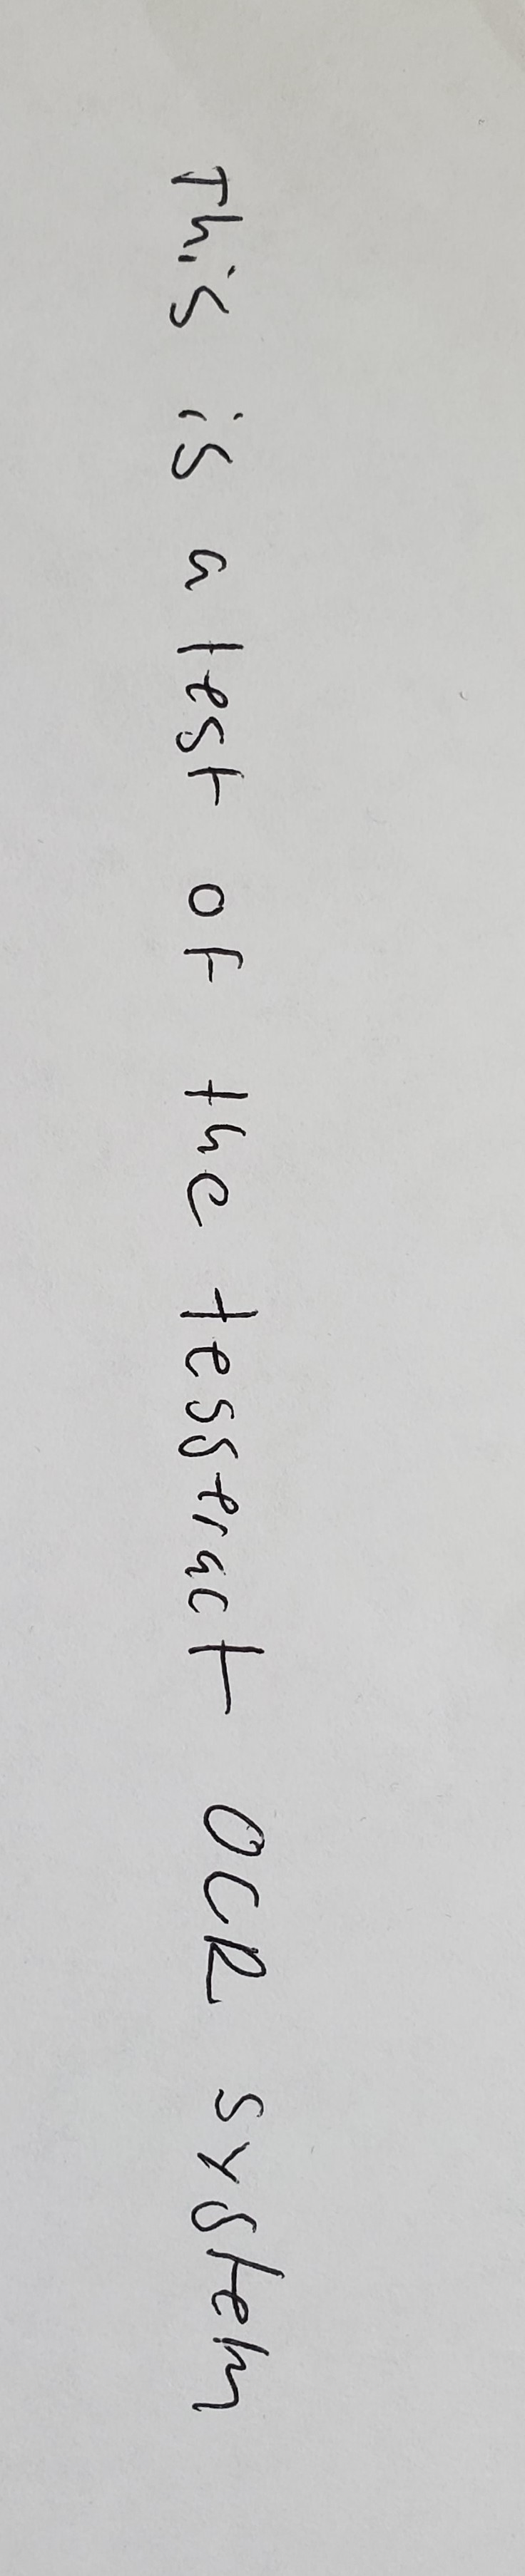 This is a test of the tesseract OCR system